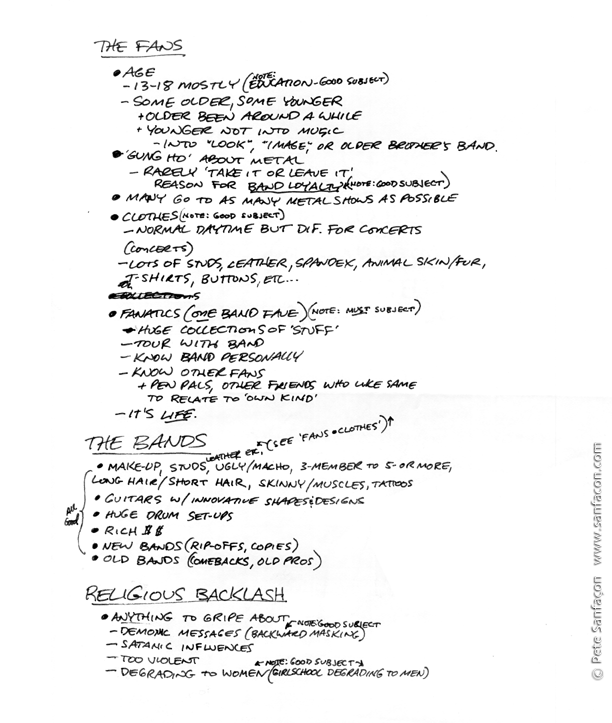 THE FANS
• AGE
– 13-18 MOSTLY (NOTE: EDUCATION-GOOD SUBJECT)
– SOME OLDER, SOME YOUNGER
+ OLDER BEEN AROUND A WHILE
+ YOUNGER NOT INTO MUSIC
– INTO "LOOK", "IMAGE," OR OLDER BROTHER'S BAND.
• 'GUNG HO' ABOUT METAL
– RARELY 'TAKE IT OR LEAVE IT'
REASON FOR BAND LOYALTY (NOTE: GOOD SUBJECT)
• MANY GO TO AS MANY METAL SHOWS AS POSSIBLE
• CLOTHES (NOTE: GOOD SUBJECT)
– NORMAL DAYTIME BUT DIF. FOR CONCERTS
(CONCERTS)
– LOTS OF STUDS, LEATHER, SPANDEX, ANIMAL SKIN/FUR,
T-SHIRTS, BUTTONS, ETC...
COLLECTIONS
• FANATICS (ONE BAND FAVE) (NOTE: MUST SUBJECT)
– HUGE COLLECTIONS OF 'STUFF'
– TOUR WITH BAND
– KNOW BAND PERSONALLY
– KNOW OTHER FANS
+ PEN PALS, OTHER FRIENDS WHO LIKE SAME
TO RELATE TO 'OWN KIND'
– IT'S LIFE.
THE BANDS (SEE 'FANS • CLOTHES')
LEATHER ETC.
• MAKE-UP, STUDS, UGLY/MACHO, 3-MEMBER TO 5-OR MORE,
LONG HAIR/SHORT HAIR, SKINNY/MUSCLES, TATTOOS
• GUITARS W/ INNOVATIVE SHAPES & DESIGNS
• HUGE DRUM SET-UPS
ALL GOOD
• RICH $$
• NEW BANDS (RIP-OFFS, COPIES)
• OLD BANDS (COMEBACKS, OLD PROS)
RELIGIOUS BACKLASH
• ANYTHING TO GRIPE ABOUT
– DEMONIC MESSAGES (BACKWARD MASKING) NOTE: GOOD SUBJECT
– SATANIC INFLUENCES
– TOO VIOLENT
NOTE: GOOD SUBJECT
– DEGRADING TO WOMEN (GIRLSCHOOL DEGRADING TO MEN)
© Pete Sanfaçon www.sanfacon.com